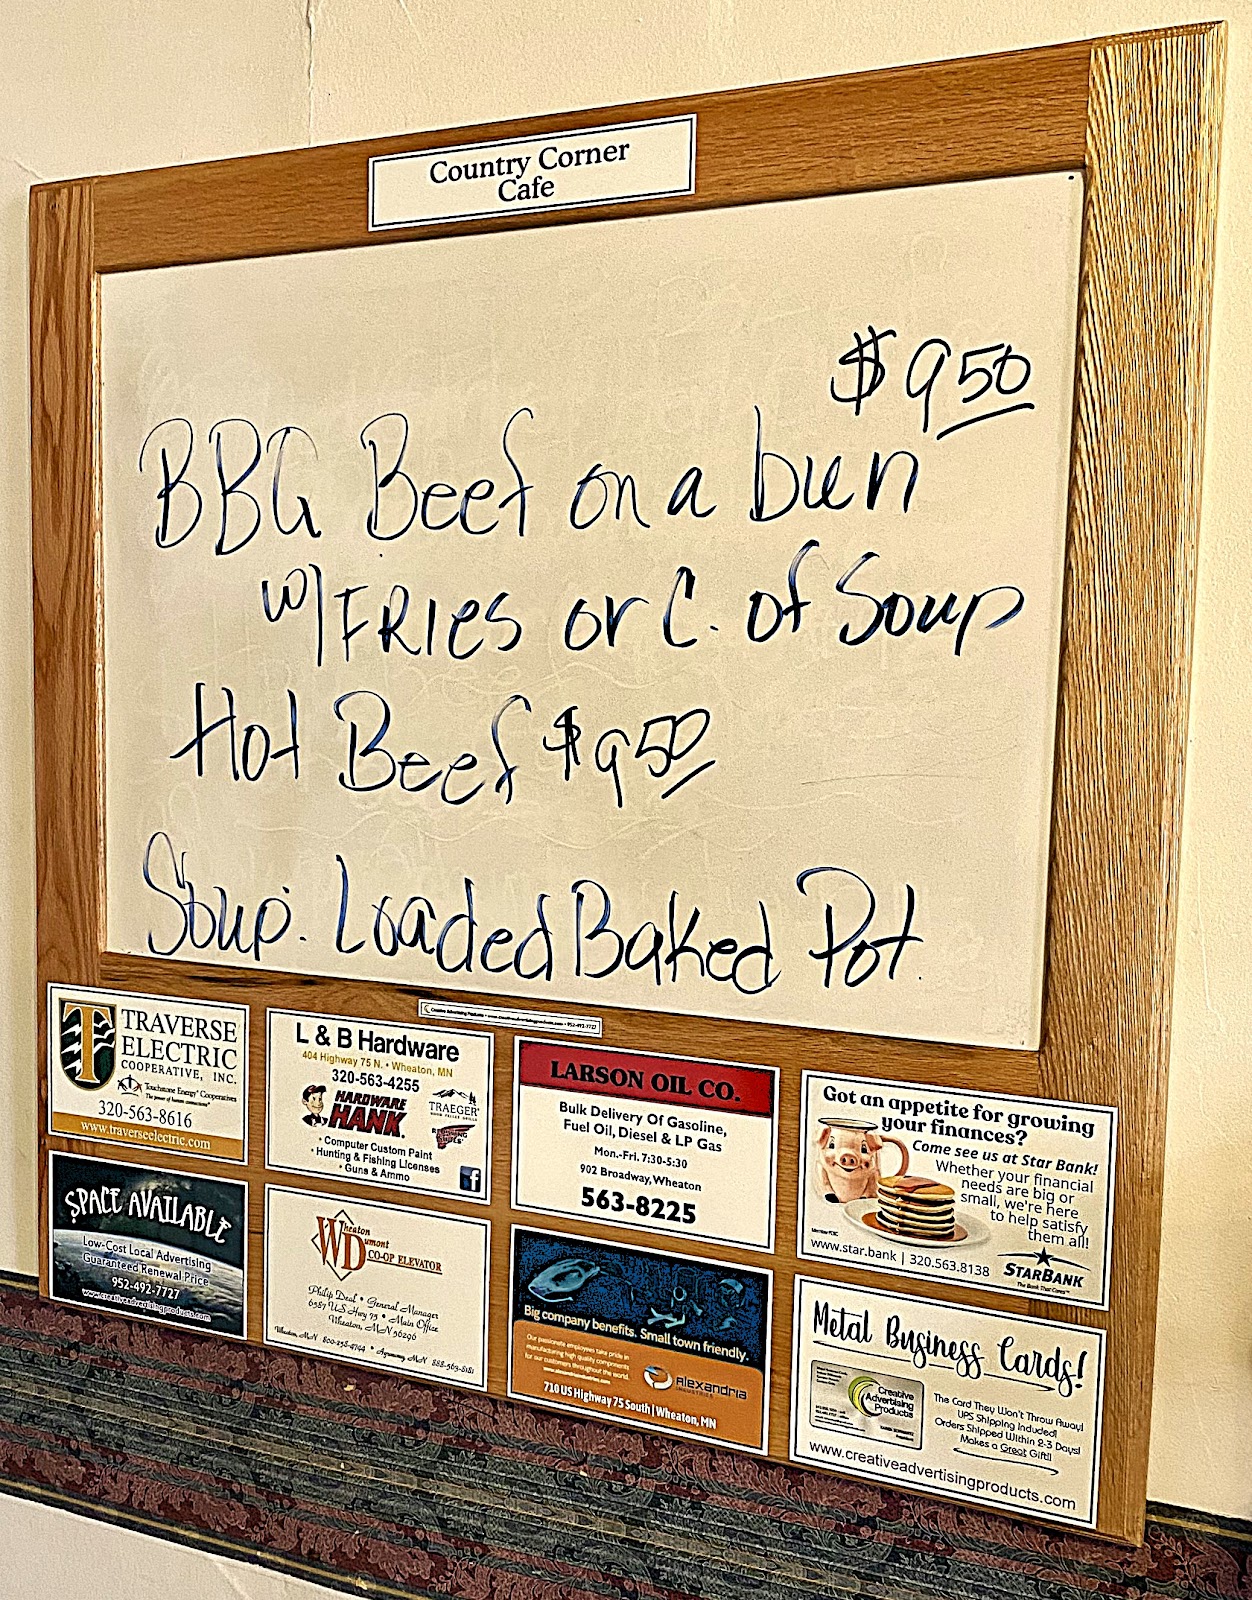 Country Corner
Cafe
$9.50
BBQ Beef on a bun
w/FRIES or C. of Soup
Hot Beef $9.50
Soup: Loaded Baked Pot.
Creative Advertising Products • www.creativeadvertisingproducts.com • 952-492-7727
TRAVERSE
ELECTRIC
COOPERATIVE, INC.
Touchstone Energy® Cooperatives
The power of human connections®
320-563-8616
www.traverseelectric.com
L & B Hardware
404 Highway 75 N. • Wheaton, MN
320-563-4255
HARDWARE
HANK.
TRAEGER
• Computer Custom Paint
• Hunting & Fishing Licenses
• Guns & Ammo
f
LARSON OIL CO.
Bulk Delivery Of Gasoline,
Fuel Oil, Diesel & LP Gas
Mon.-Fri. 7:30-5:30
902 Broadway, Wheaton
563-8225
Got an appetite for growing
your finances?
Come see us at Star Bank!
Whether your financial
needs are big or
small, we're here
to help satisfy
them all!
Member FDIC
www.star.bank | 320.563.8138
STARBANK
The Bank That Cares
SPACE AVAILABLE
Low-Cost Local Advertising
Guaranteed Renewal Price
952-492-7727
www.creativeadvertisingproducts.com
Wheaton
Dumont
CO-OP ELEVATOR
Philip Deal • General Manager
6587 US Hwy 75 • Main Office
Wheaton, MN 56296
Wheaton, MN 800-258-4744 • MN 888-563-8181
Big company benefits. Small town friendly.
Our passionate employees take pride in
manufacturing high quality components
for our customers throughout the world.
ALEXANDRIA
INDUSTRIES
710 US Highway 75 South | Wheaton, MN
Metal Business Cards!
Creative
Advertising
Products
The Card They Won't Throw Away!
UPS Shipping Included!
Orders Shipped Within 2-3 Days!
Makes a Great Gift!
www.creativeadvertisingproducts.com